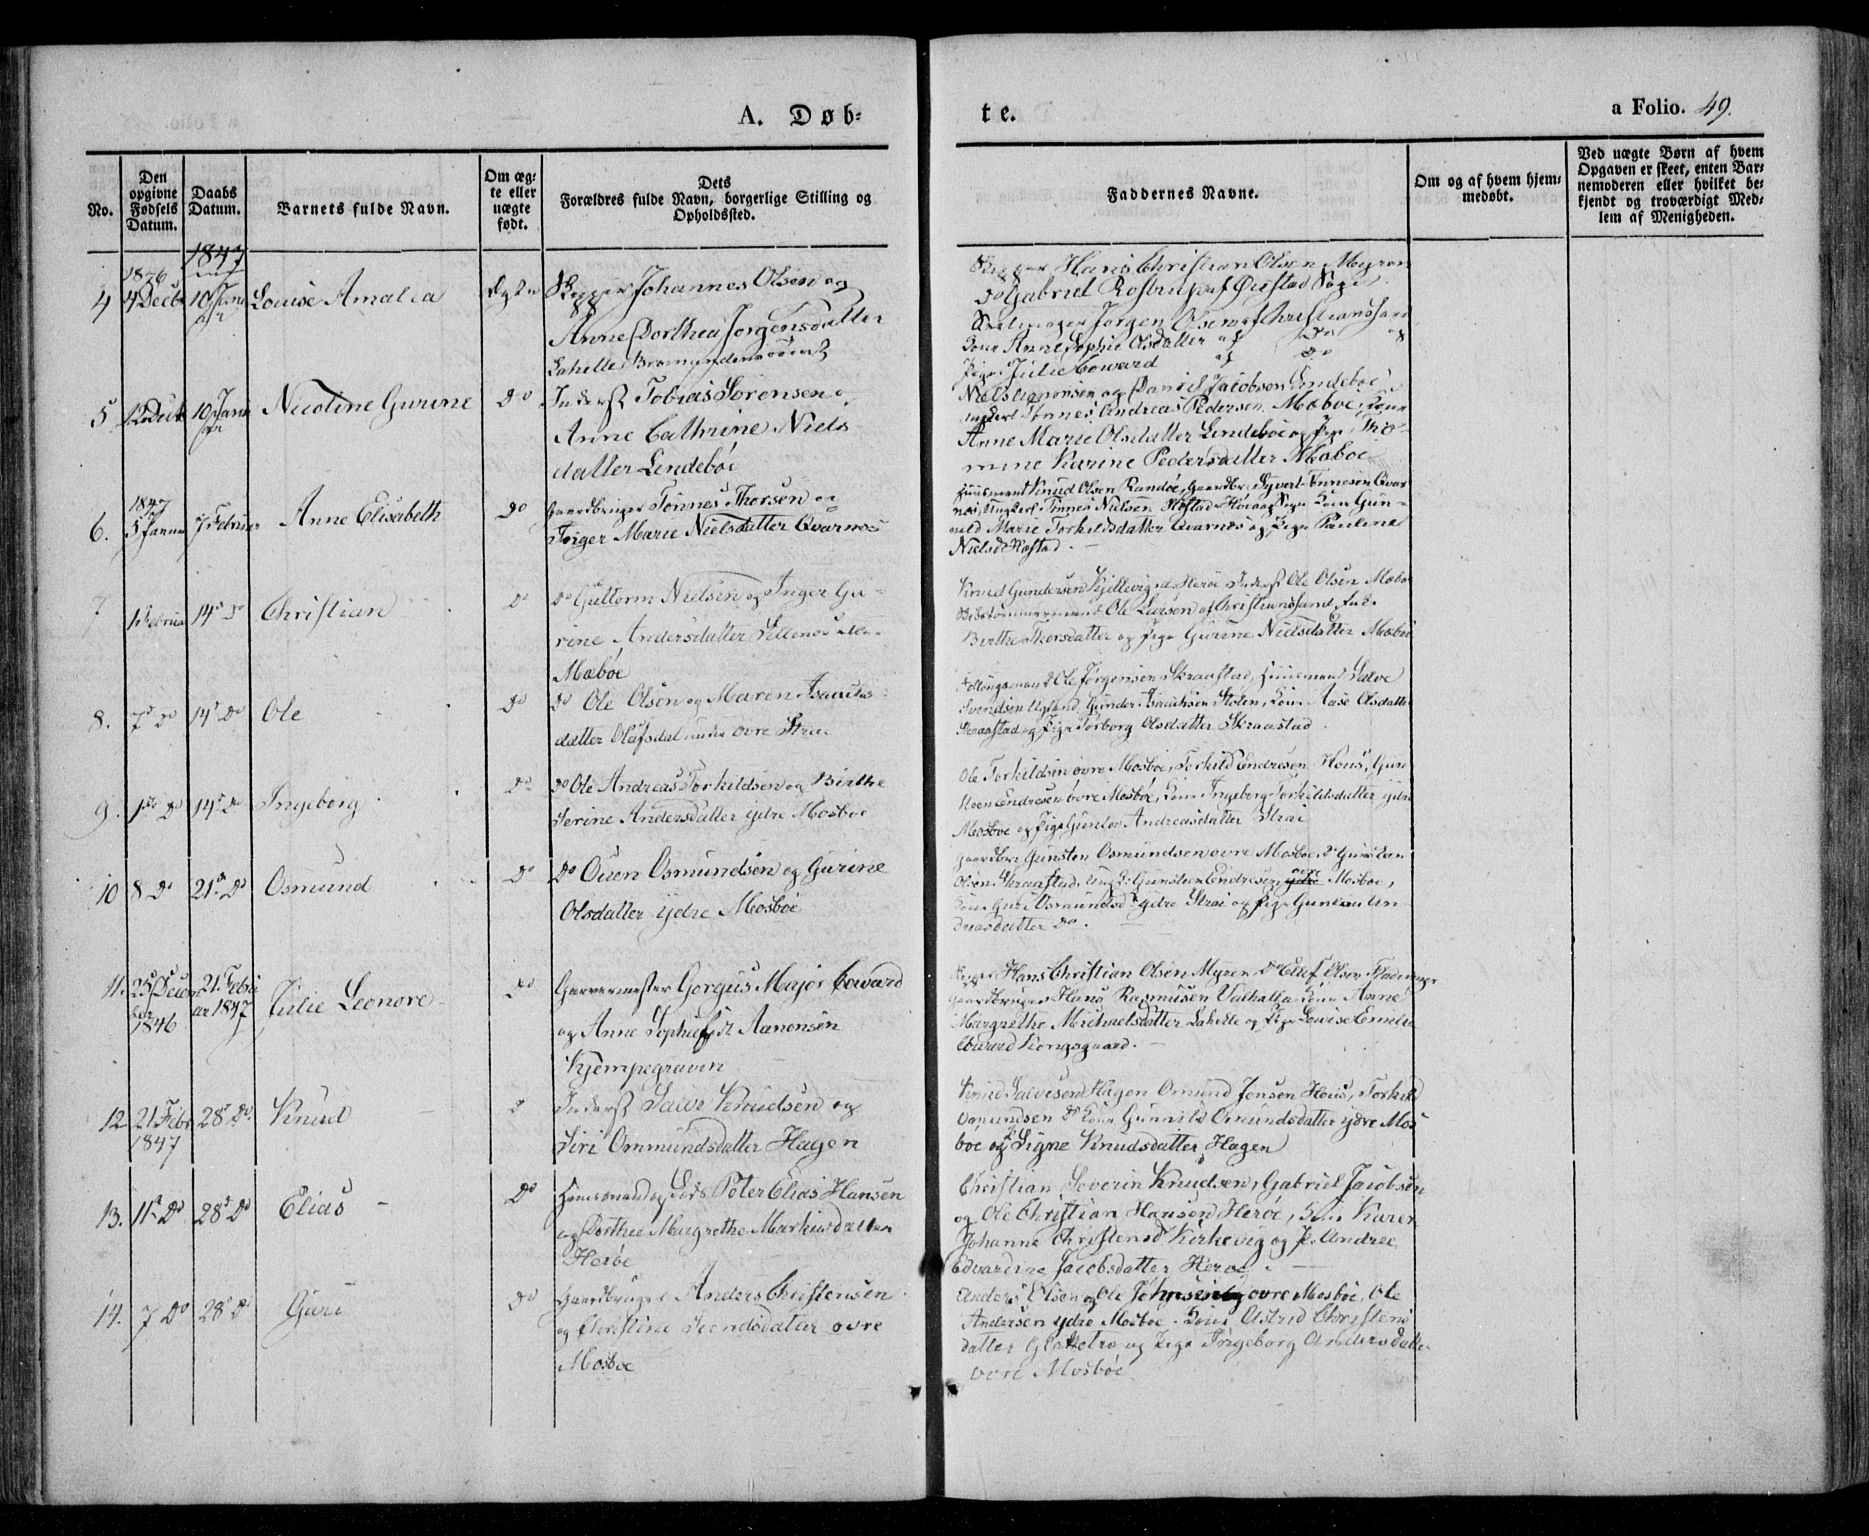 A. Døb-
te.
a Folio. 49.
No.
Den opgivne Fødsels Datum.
Daabs Datum.
Barnets fulde Navn.
Om ægte eller uægte født.
Dets Forældres fulde Navn, borgerlige Stilling og Opholdssted.
Faddernes Navne.
Om og af hvem hjemmedøbt.
Ved uægte Børn af hvem Opgaven er skeet, enten Barnemoderen eller hvilket bekjendt og troværdigt Medlem af Menigheden.
1847
4 1846 4 Decbr 10 Janu Louise Amalia Ægte Skipper Johannes Olsen og
Anne Dorthea Jørgensdatter
Lahelle
Hans Christian Olsen Myren
Do Gabriel Rostrup af Øiestad Sogn
Jørgen Olsen af Christianssand
Kone Anne Sophie Olsdatter af Do og
Pige Julie Coward af Do
5 Decb 10 Janu Nicoline Gurine Do Inderst Tobias Sørensen og
Anne Cathrine Niels
datter Lendebøe
Niels og Daniel Jacobsen Lendeboe,
Tønnes Andreas Pedersen Mæboe, Kone
Anne Marie Olsdatter Lendeboe og Pige Tho-
mine Karine Pedersdatter Mæboe
6. 1847 5 Januar 7 Februar Anne Elisabeth Do Gaardbruger Tønnes Thorsen og
Inger Marie Nielsdatter Qvarnes
Huusmand Knud Olsen Randøe, Gaardbr. Syvert Tønnesen Qvar
nes, Ungkarl Tønnes Nielsen Røstad Kone Gun-
nild Marie Torkildsdatter Qvarnes og Pige Pauline
Nielsd Røstad.
7 1 Februar 14 Do Christian Do Do Guttorm Nielsen og Inger Gu-
rine Andersdatter
Mæbøe
Knud Gundersen Kjillevig Herøe Inderst Ole Olsen Mæboe
Ole Larsen af Christianssand, Enke
Birthe Thorsdatter og Pige Gurine Nielsdatter Mæboe
8. 7 Do 14 Do Ole Do Do Ole Olsen og Maren Isaachs-
datter Olafsdal under øvre Strai
Ole Jørgensen Skraastad, Huusmand Salve
Svendsen Ugland, Gunder Isaachsen Stolen, Kone Aase Olsdatter
Skraastad og Pige Torborg Olsdatter Skraastad
9. 1ste Do 14 Do Ingeborg Do Do Ole Andreas Torkildsen og Birthe
Serine Andersdatter ydre Mosboe
Ole Torkildsen øvre Mosboe, Torkild Endresen Hous, Gun
Endresen øvre Mosbøe, Kone Ingeborg Torkildsdatter ydre
Mosboe og Pige Gunlov Andreasdatter Strai
10 8 Do 21 Do Osmund Do Do Ouen Osmundsen og Gurine
Olsdatter ydre Mosbøe
Gaardbr: Gunsten Osmundsen øvre Mosboe, Do
Olsen Skraastad, Ungk: Gunsten Endresen øvre Mosboe,
Kone Guri Osmundsd ydre Strai og Pige Gunlau An
dreasdatter Do.
11. 25 Decem ber 1846 21 Febru ar 1847 Julie Leonore Do Garvermester Gorgus Major Coward
og Anne Sophie Aanonsen
Kjempegraven
Hans Christian Olsen Myren Do Ellef Olsen
Gaardbruger Hans Rasmusen Valhalla Kone Anne
Margrethe Michaelsdatter Lahelle og Pige Lovise Emelie
Coward Kongsgaard.
12. 21 Febr 1847 28 Do Knud Inderst Salve Knudsen og
Siri Ommundsdatter Hagen
Knud Salvesen Hagen Omund Jensen Hous, Torkild
Omundsen Do Kone Gunnild Omundsdatter ydre Mos
boe og Signe Knudsdatter Hagen
13. 11 Do 28 Do Elias Do Peter Elias Hansen
og Dorthea Margrethe Markusdatter
Herøe
Christian Severin Knudsen, Gabriel Jacobsen
og Ole Christian Hansen Herøe, Kone Karen
Johanne Christensd Kirkevig og P. Andrea
Edvardine Jacobsdatter Herøe.
14. 7 Do 28 Do Guri Do Gaardbruger Anders Christensen
og Christine datter øvre
Mosboe
Anders Olsen og Ole Johnsen øvre Mosboe, Ole
Andersen ydre Mosboe. Kone Astrid Christens
datter og Pige Ingeborg Andersdatter
øvre Mosbøe